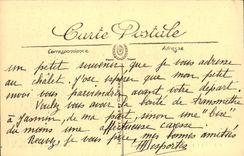 Carte Postale
Correspondance Adresse
un petit souvenir que je vous adresse
au châlet. J'ose espérer que mon petit
envoi vous parviendra avant votre départ.
Voulez vous avoir la bonté de transmettre
à Jasmin, de ma part, sinon une "bise"
du moins une affectueuse caresse.
Recevez je vous prie, mes bonnes amitiés